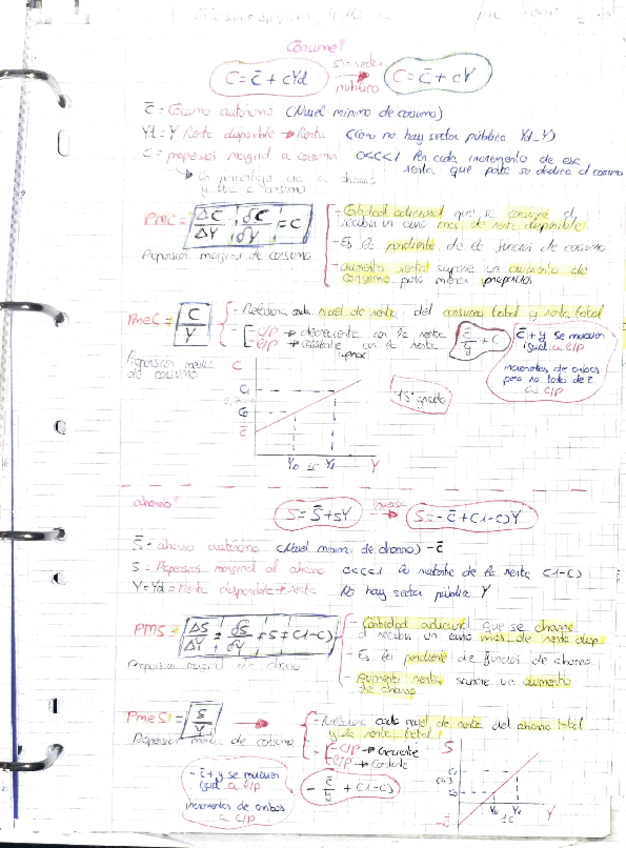 Consumo
C = C̄ + cYd sin sector público C = C̄ + cY
C̄ = Consumo autónomo (Nivel mínimo de consumo)
Yd = Y Renta disponible → Renta (como no hay sector público Yd = Y)
C = propensión marginal a consumir 0<c<1 Por cada incremento de esa
renta que parte se dedica al consumo
PMC = ΔC/ΔY = δC/δY = C
Propensión marginal de consumo
- Cantidad adicional que se consume al
recibir un euro más de renta disponible.
- Es la pendiente de la función de consumo
- aumento renta supone un aumento de
consumo pero menos proporción
PmeC = C/Y
Propensión media de consumo
- Relaciona cada nivel de renta del consumo total y renta total
- C/P → decreciente con la renta
C/P → constante con la renta
C̄/Y + C
C̄ + y se mueven
igual a C/P
incrementos de ambos
pero no todo de C
C
C1
C0
C̄
Y0 Y1 Y
45° grados
ahorro
S = S̄ + sY S = -C̄ + (1-c)Y
S̄ = ahorro autónomo (Nivel mínimo de ahorro) -C̄
S = Propensión marginal al ahorro 0<s<1 lo restante de la renta (1-c)
Y = Yd = Renta disponible → renta No hay sector público Y
PMS = ΔS/ΔY = δS/δY = S = (1-c)
Propensión marginal de ahorro
- Cantidad adicional que se ahorra
al recibir un euro más de renta disp.
- Es la pendiente de función de ahorro
- aumento renta supone un aumento
de ahorro
PmeS = S/Y
Propensión media de consumo
- Relaciona cada nivel de renta del ahorro total
y la renta total
- C/P → creciente
C/P → constante
- C̄ + y se mueven
igual a C/P
incrementos de ambos
a C/P
- C̄/Y + (1-c)
S
Y0 Y1 Y